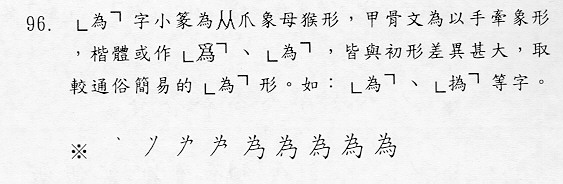 96. ﹂為﹁字小篆為𠈌爪象母猴形，甲骨文為以手牽象形
，楷體或作﹂爲﹁、﹂為﹁，皆與初形差異甚大，取
較通俗簡易的﹂為﹁形。如：﹂為﹁、﹂撝﹁等字。
※